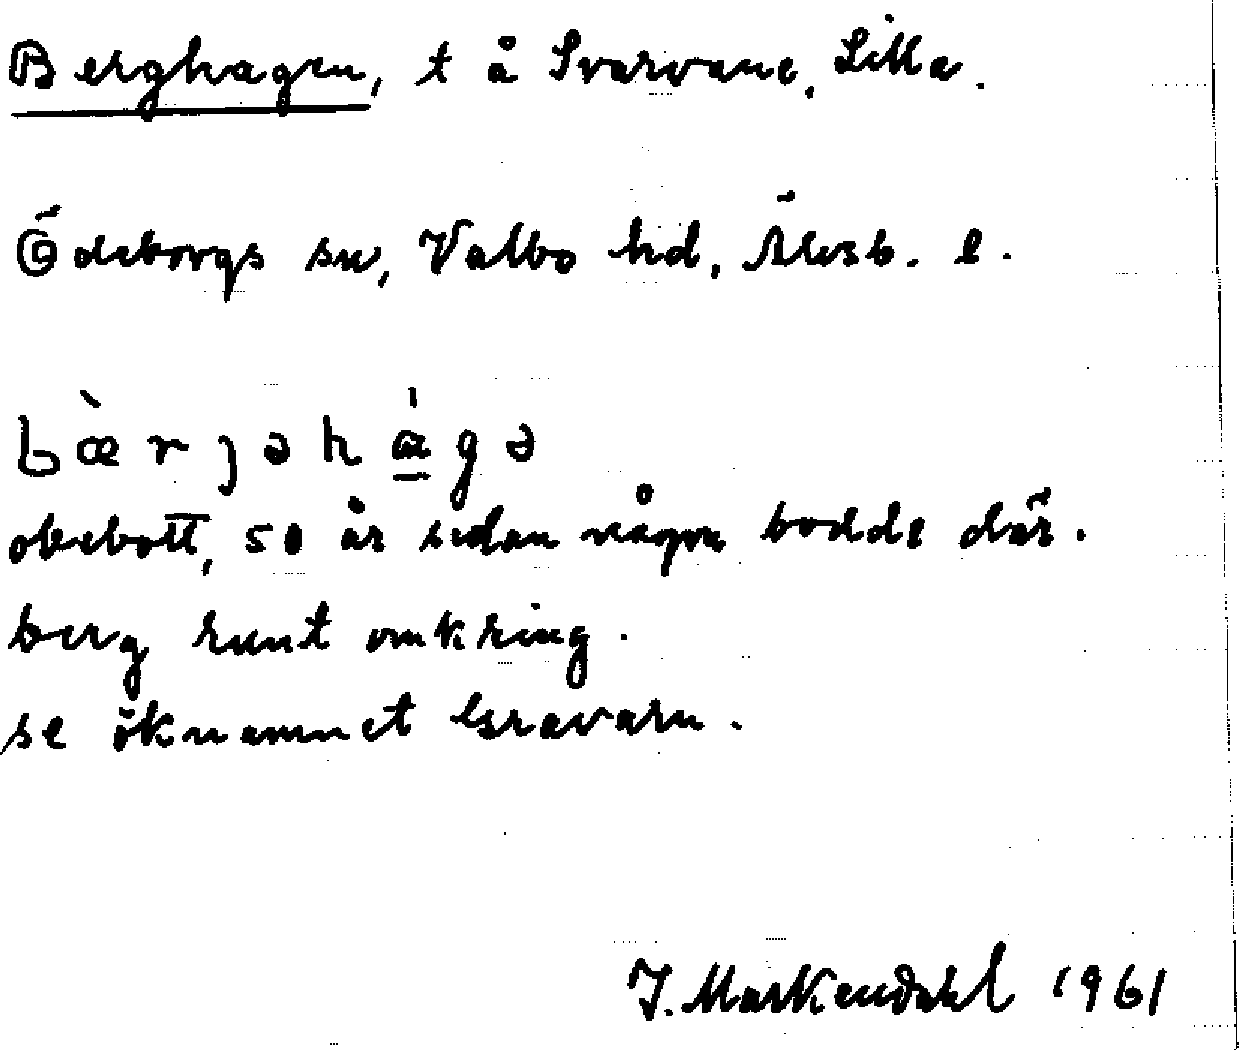 Berghagen, t å Svarvane, Lilla.
Ödeborgs sn, Valbo hd, Älvsb. l.
bæ̀rjəhá̱gə
obebott, 50 år sedan någon bodde där.
berg runt omkring.
se öknamnet Gravarn.
J. Markendahl 1961